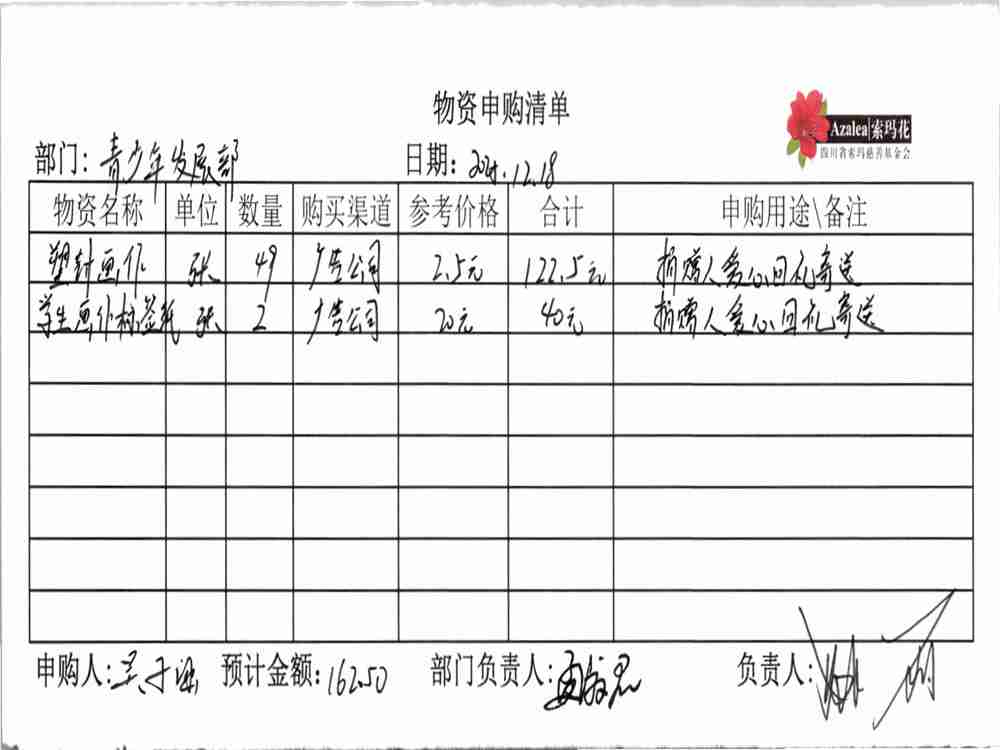 物资申购清单
Azalea 索玛花
四川省索玛慈善基金会
部门: 青少年发展部 日期: 2021.12.18
物资名称 单位 数量 购买渠道 参考价格 合计 申购用途\备注
塑封画作 张 49 广告公司 2.5元 122.5元 捐赠人爱心回礼寄送
学生画作标签纸 张 2 广告公司 20元 40元 捐赠人爱心回礼寄送
申购人: 预计金额: 162.50 部门负责人: 负责人: